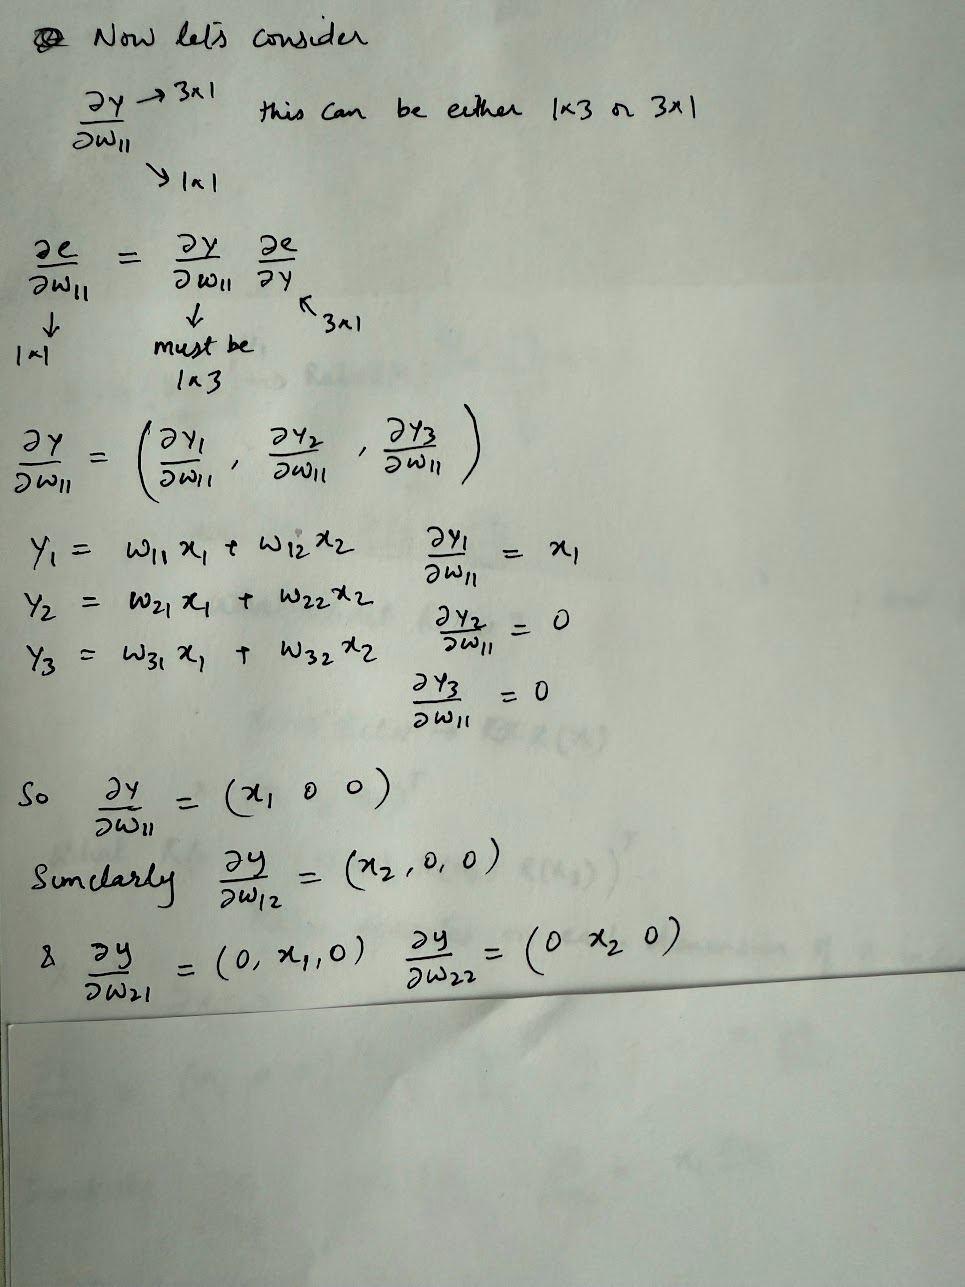 Now lets consider
∂y/∂w11 → 3x1 this can be either 1x3 or 3x1
↘ 1x1
∂e/∂w11 = ∂y/∂w11 ∂e/∂y
↓ ↓ ↖ 3x1
1x1 must be
1x3
∂y/∂w11 = (∂y1/∂w11, ∂y2/∂w11, ∂y3/∂w11)
y1 = w11 x1 + w12 x2 ∂y1/∂w11 = x1
y2 = w21 x1 + w22 x2 ∂y2/∂w11 = 0
y3 = w31 x1 + w32 x2
∂y3/∂w11 = 0
So ∂y/∂w11 = (x1 0 0)
Similarly ∂y/∂w12 = (x2, 0, 0)
& ∂y/∂w21 = (0, x1, 0) ∂y/∂w22 = (0 x2 0)